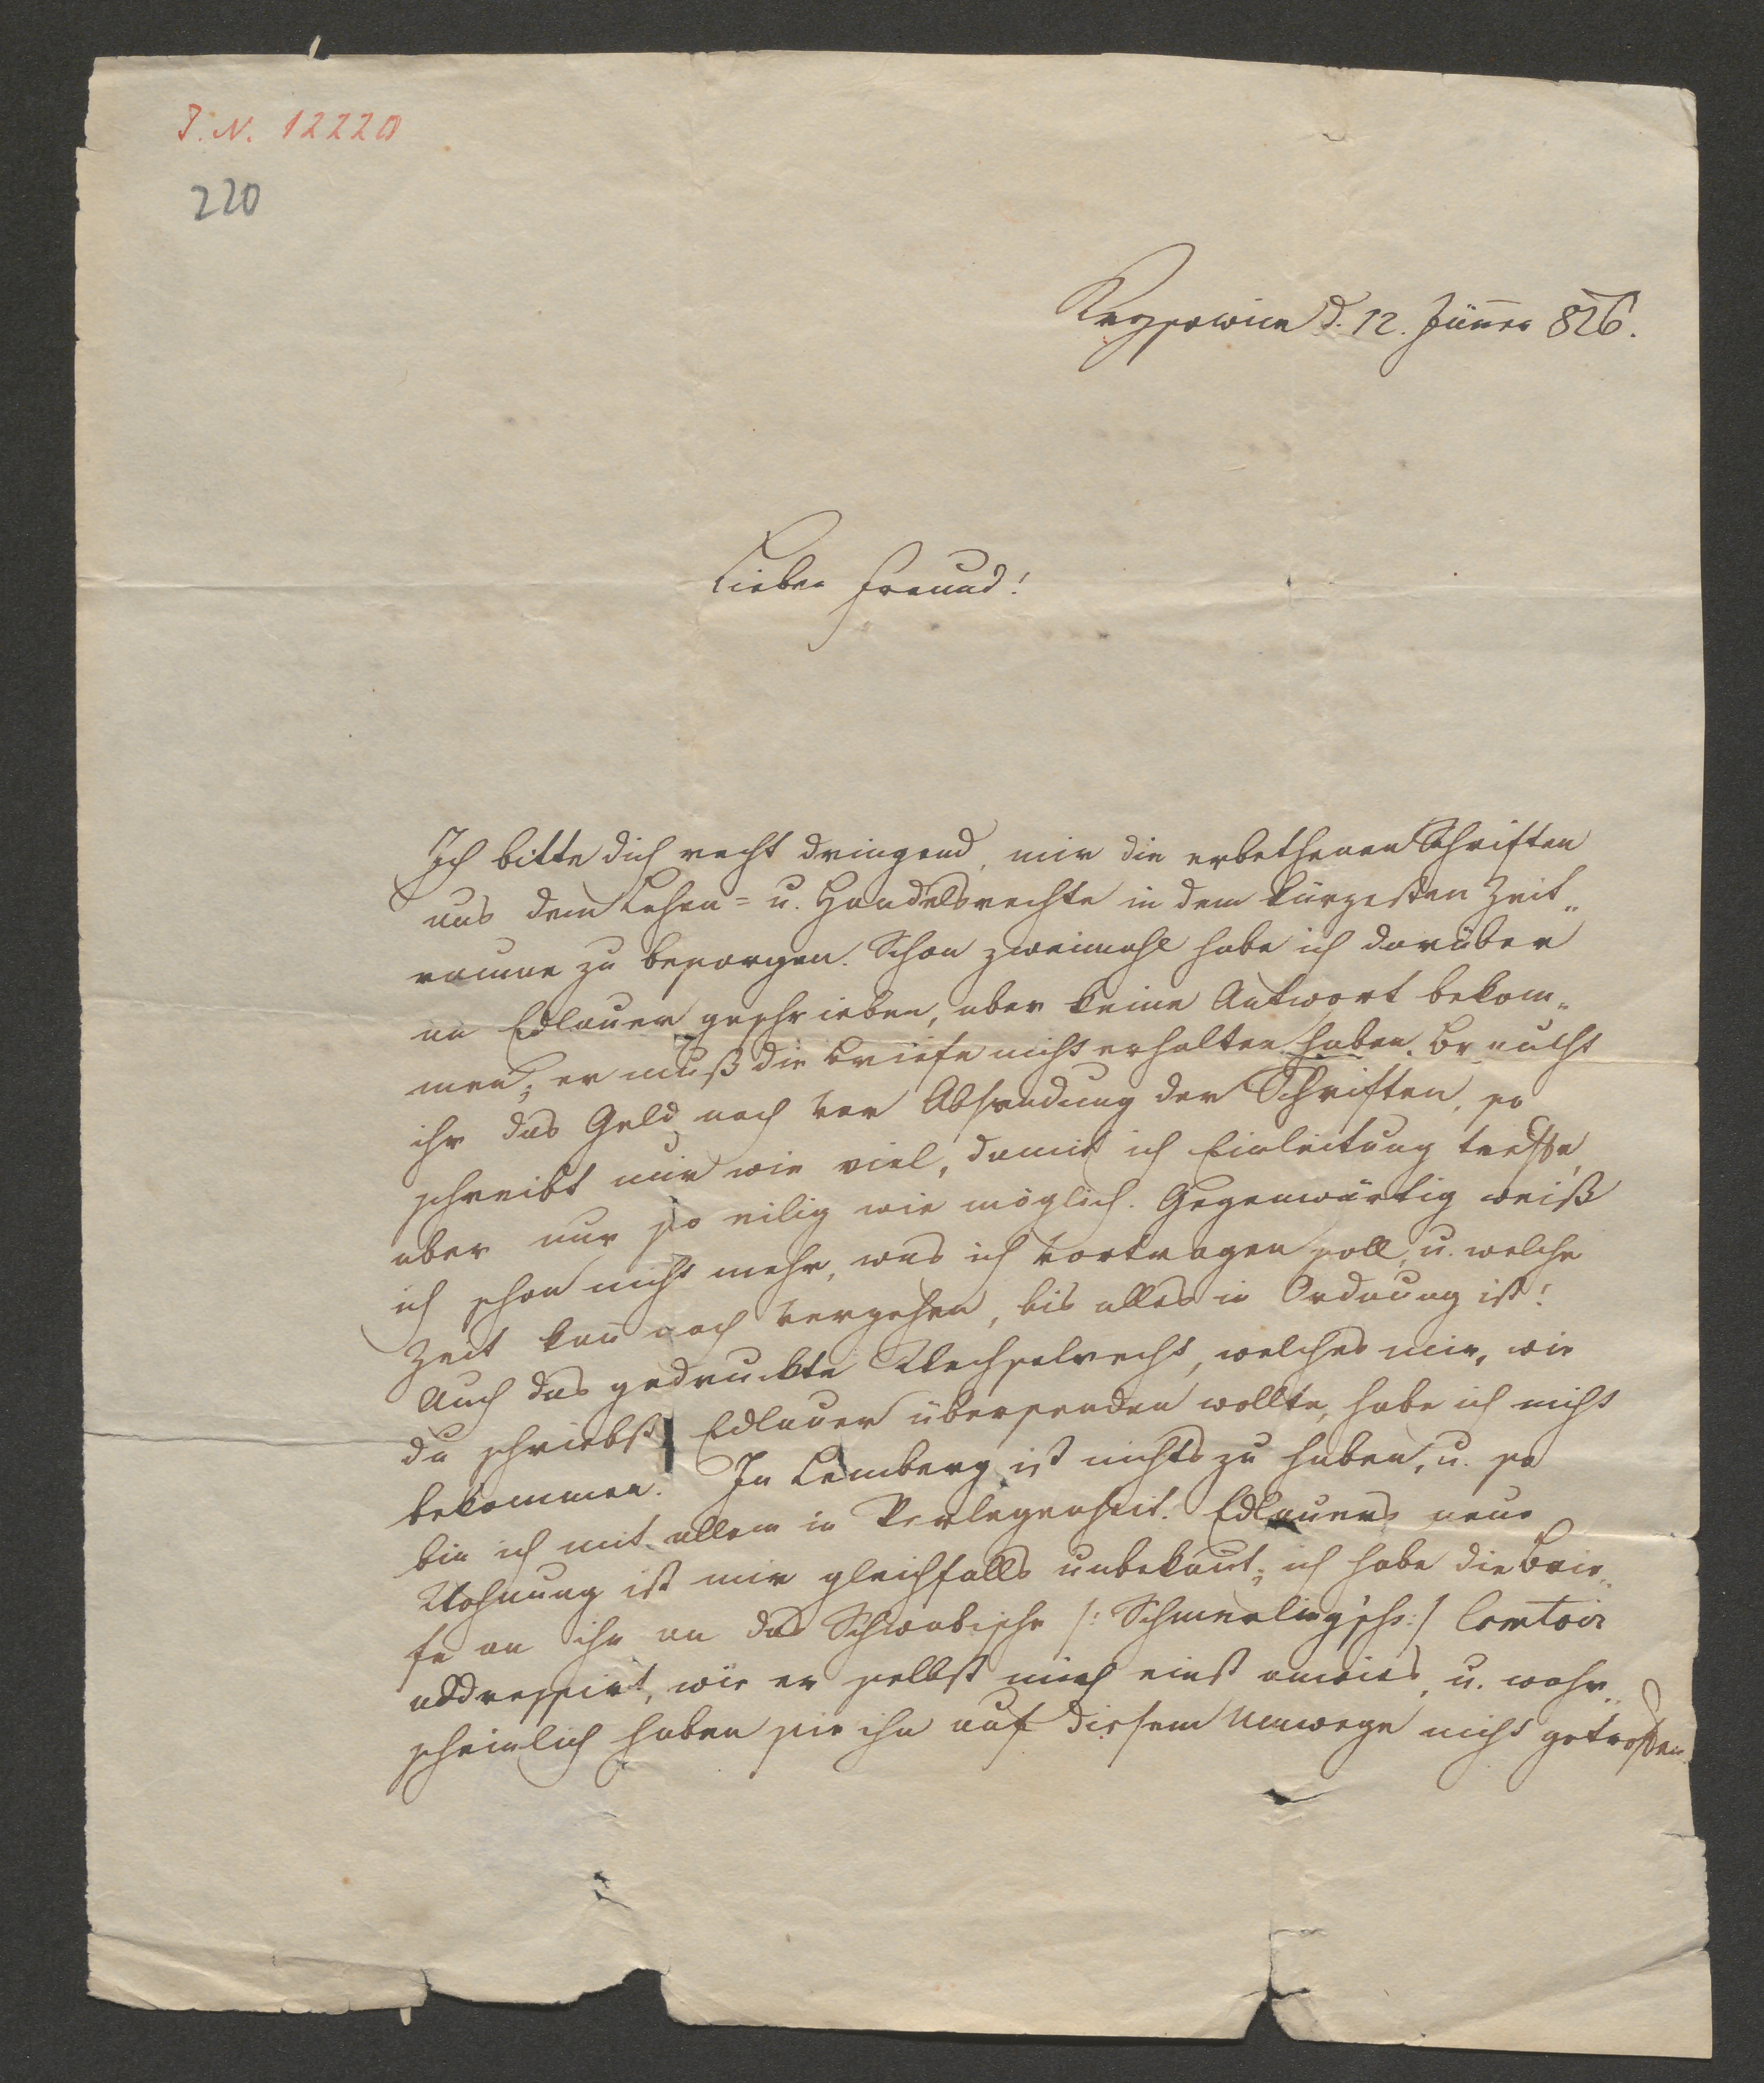 I. N. 12220
220
d. 12. Jänner 826.
Lieber Freund!
Ich bitte dich recht dringend, mir die erbethenen Schriften
aus dem Lehen= u. Handelsrechte in dem kürzesten Zeit„
raume zu besorgen. Schon zweimahl habe ich darüber
an Edlauer geschrieben, aber keine Antwort bekom„
men; er muß die Briefe nicht erhalten haben. Braucht
ihr das Geld noch vor Absendung der Schriften, so
schreibt mir wie viel, damit ich Einleitung treffe,
aber nur so eilig wie möglich. Gegenwärtig weiß
ich schon nicht mehr, was ich vortragen soll, u. welche
Zeit kan̄ noch vergehen, bis alles in Ordnung ist!
Auch das gedruckte Wechselrecht, welches mir, wie
du schriebst Edlauer übersenden wollte, habe ich nicht
bekommen. In Lemberg ist nichts zu haben, u. so
bin ich mit allem in Verlegenheit. Edlauers neue
Wohnung ist mir gleichfalls unbekan̄t; ich habe die Brie„
fe an ihn an das Schwabische /: Schmerling'sche :/ Comtoir
addressirt, wie er selbst mich einst anwies, u. wahr„
scheinlich haben sie ihn auf diesem Umwege nicht getroffen.